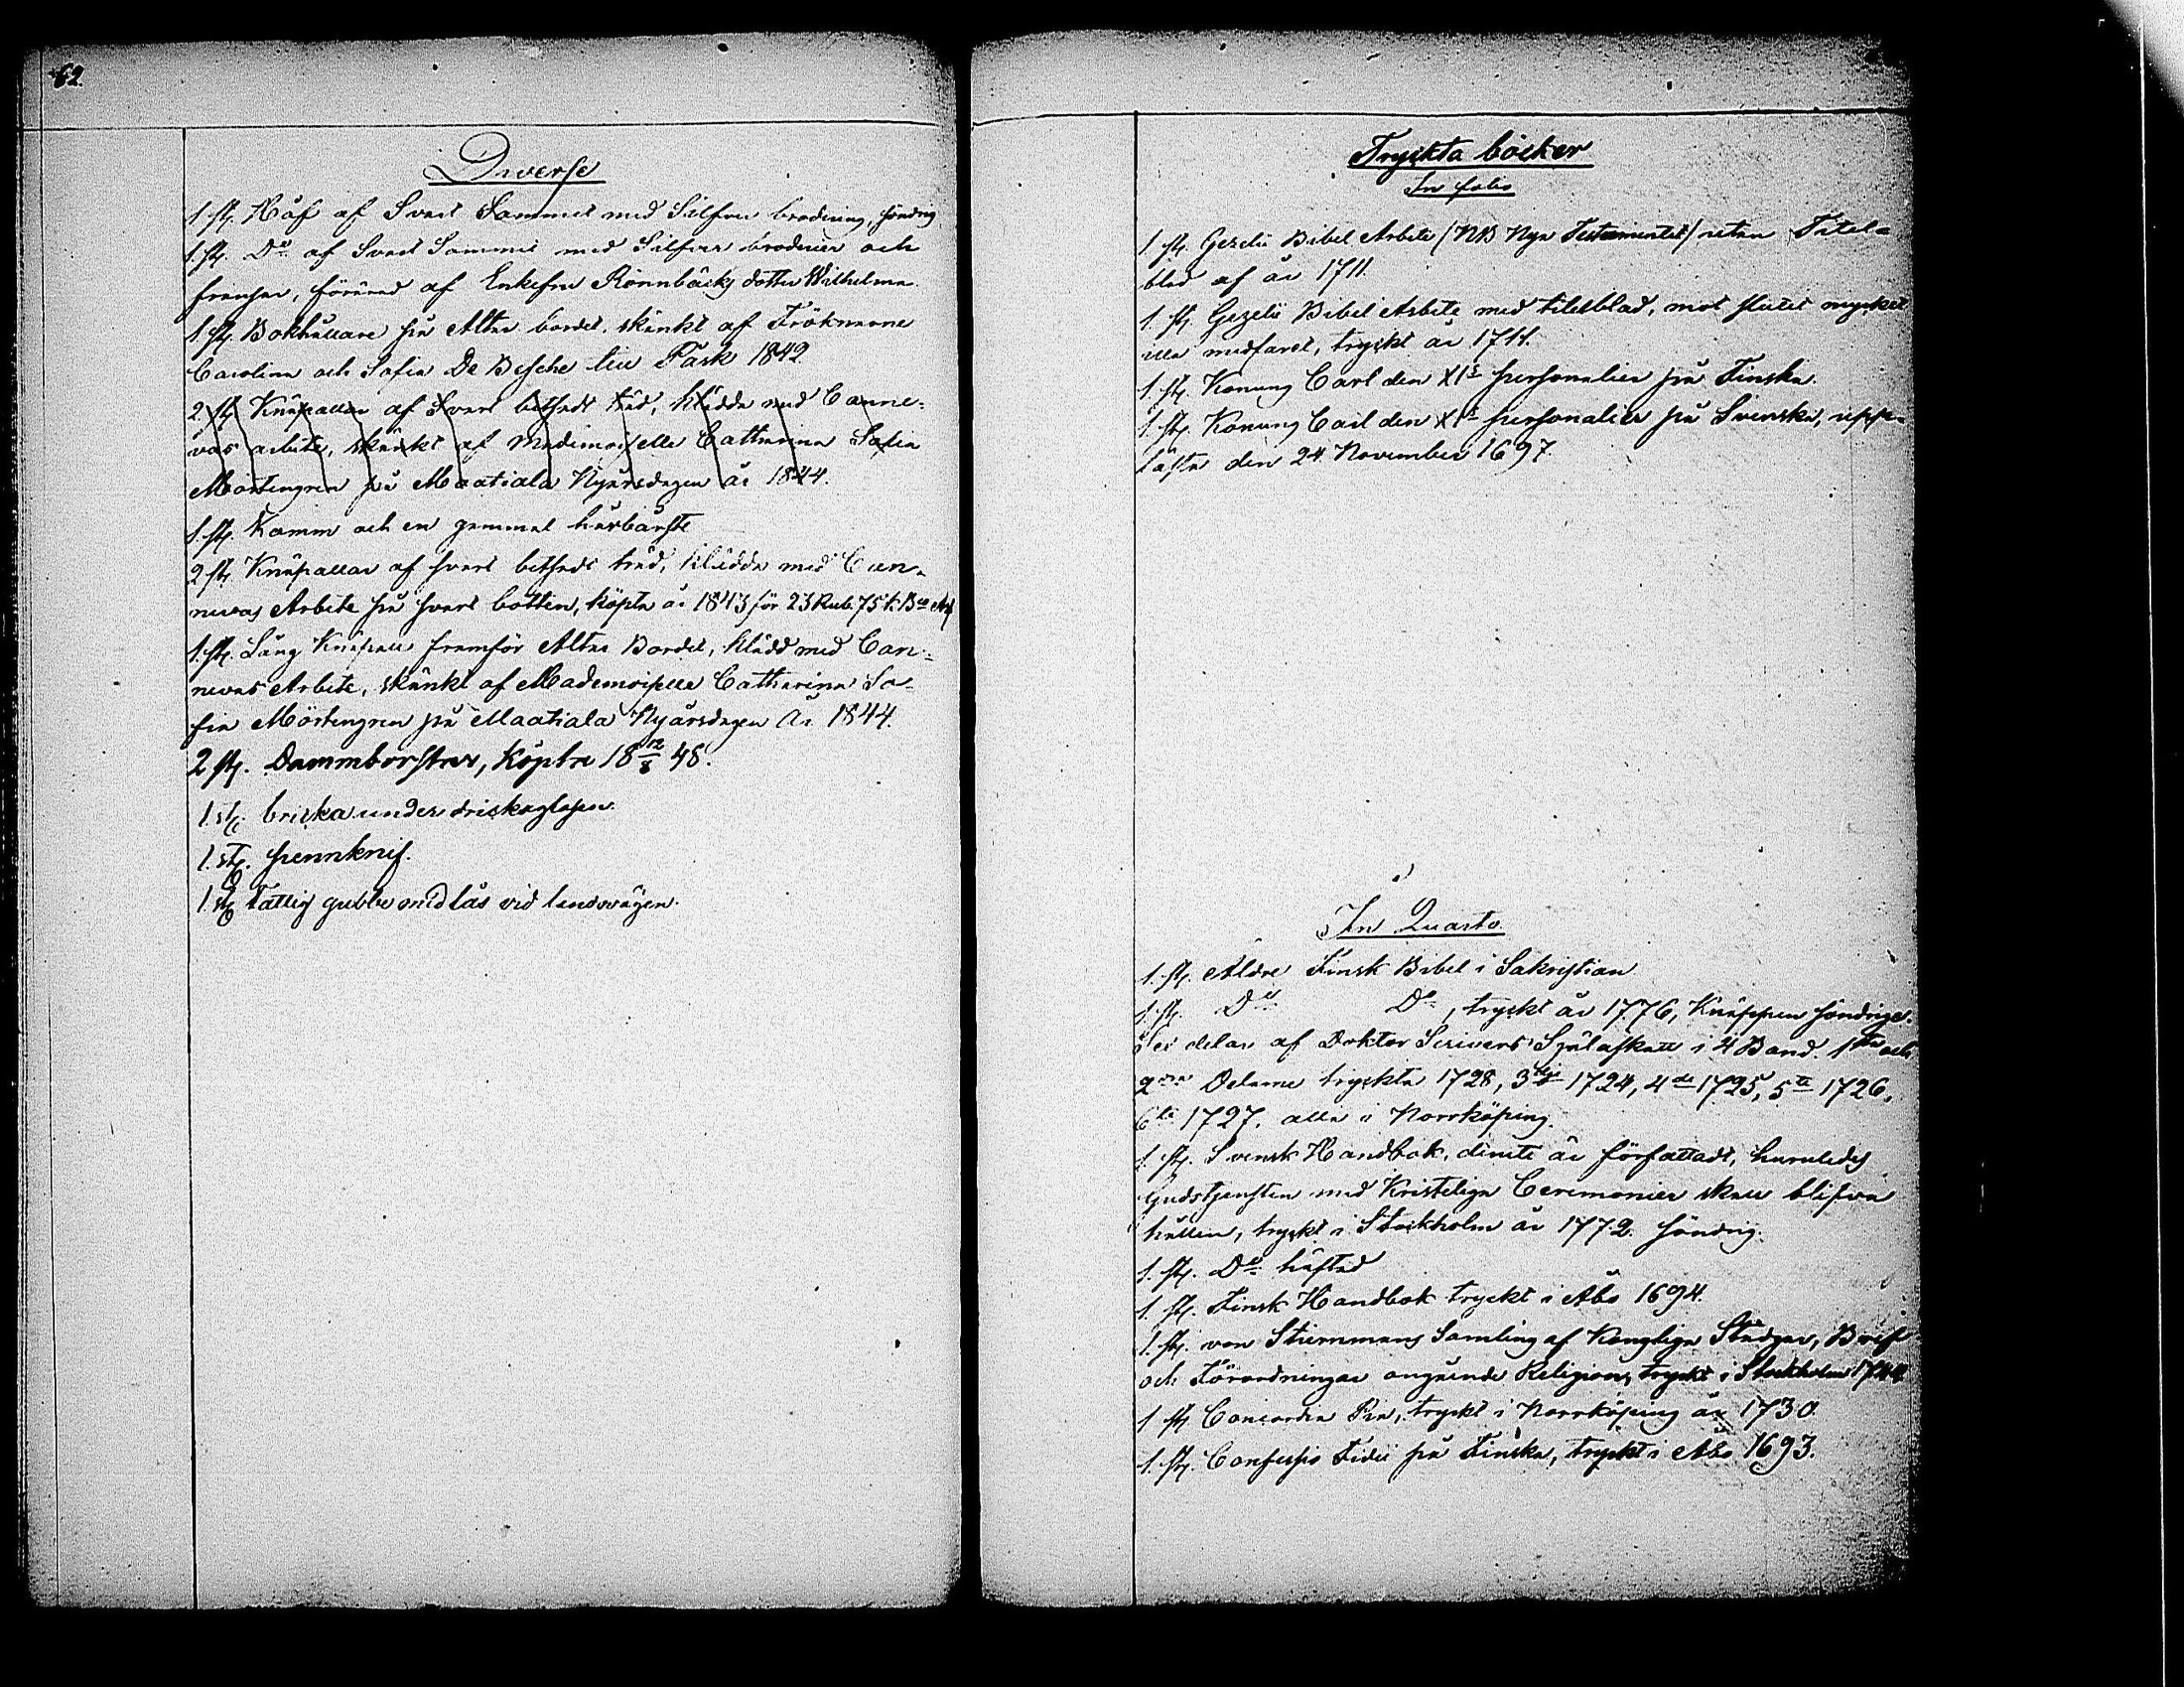 62.
Diverse
1. st. Håf af Svart Sammet med Silfver brodering, söndrig
1. st. Do af Svart Sammet med Silfver broderier och
fransar, förärad af Enkefru Rönnbäcks dotter Wilhelmina
1 st. Bokhållare på Altar bordet, skänkt af Fröknarne
Carolina och Sofia De Besche till Påsk 1842
2. st. Knäpallar af svart betsadt träd, klädda med Canne-
vas arbete, skänkt af Mademoiselle Catharina Sofia
Mörtengren på Maatiala Nyårsdagen år 1844.
1. st. Kamm och en gammal hårbörste
2 st. Knäpallar af svart betsadt träd, klädda med Can-
nevas Arbete på svart botten, köpta år 1843 för 23 Rub. 75 k. Bco Ass
1. st. Lång Knäpall framför Altar Bordet, klädd med Can-
nevas Arbete, skänkt af Mademoiselle Catharina So-
fia Mörtengren på Maatiala Nyårsdagen År 1844.
2 st. Dammborstar, köpta 18 12/8 48.
1. st. bricka under dricksglasen.
1. st. pennknif.
1. st. Fattig gubbe med lås vid landsvägen.
Tryckta böcker
In folio
1 st. Gezelii Bibel Arbete (NB Nya Testamentet) utan Titel-
blad af år 1711.
1. st. Gezelii Bibel Arbete med titelblad, mot slutet mycket
illa medfaret, tryckt år 1711.
1. st. Konung Carl den XIs personalier på Finska.
1. st. Konung Carl den XIs personalier på Svenska, upp-
läste den 24 November 1697.
In Quarto.
1. st. Äldre Finsk Bibel i Sakristian
1. st. Do Do, tryckt år 1776, Knäppen söndrige.
Sex delar af Doktor Scrivers Själaskatt i 4 Band. 1sta och
2dra Delarne tryckta 1728, 3dje 1724, 4de 1725, 5te 1726,
6te 1727, alla i Norrköping.
1. st. Svensk Handbok, deruti är författadt, huruledes
Gudstjensten med Kristeliga Ceremonier skall blifva
hållen, tryckt i Stockholm år 1772. söndrig.
1. st. Do häftad
1. st. Finsk Handbok tryckt i Åbo 1694.
1. st. von Stiernmans Samling af Kongliga Stadgar, Bref
och Förordningar angående Religion, tryckt i Stockholm 1744
1 st. Concordia Pia, tryckt i Norrköping år 1730.
1. st. Confessio Fidei på Finska, tryckt i Åbo 1693.